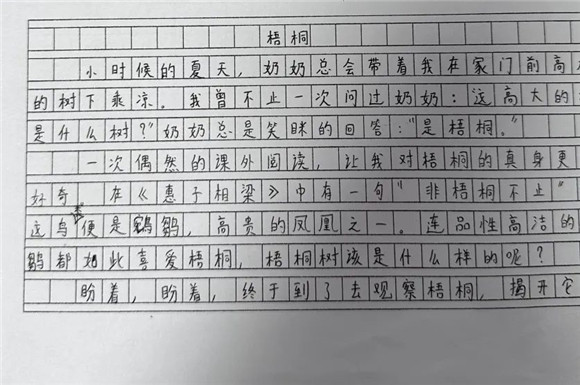 梧桐
小时候的夏天,奶奶总会带着我在家门前高
的树下乘凉。我曾不止一次问过奶奶:"这高大的
是什么树?"奶奶总是笑眯的回答:"是梧桐。"
一次偶然的课外阅读,让我对梧桐的真身更
好奇 在《惠子相梁》中有一句"非梧桐不止"
这鸟便是鹓鶵,高贵的凤凰之一。连品性高洁的
鶵都如此喜爱梧桐,梧桐树该是什么样的呢?
盼着,盼着,终于到了去观察梧桐,揭开它